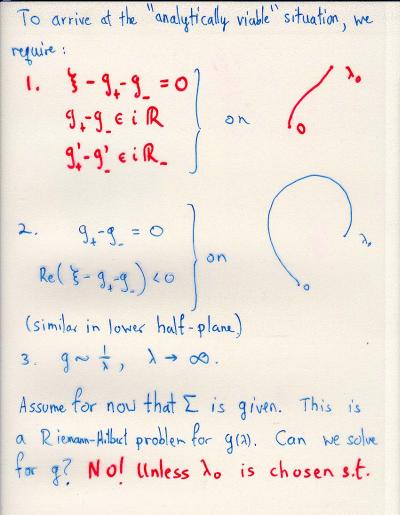 To arrive at the "analytically viable" situation, we
require:
1. ξ - g₊ - g₋ = 0
g₊ - g₋ ∈ iℝ
g₊' - g₋' ∈ iℝ₋
on
λ₀
0
2. g₊ - g₋ = 0
Re(ξ - g₊ - g₋) < 0
on
λ₀
0
(similar in lower half-plane)
3. g ~ 1/λ, λ → ∞.
Assume for now that Σ is given. This is
a Riemann-Hilbert problem for g(λ). Can we solve
for g? No! Unless λ₀ is chosen s.t.